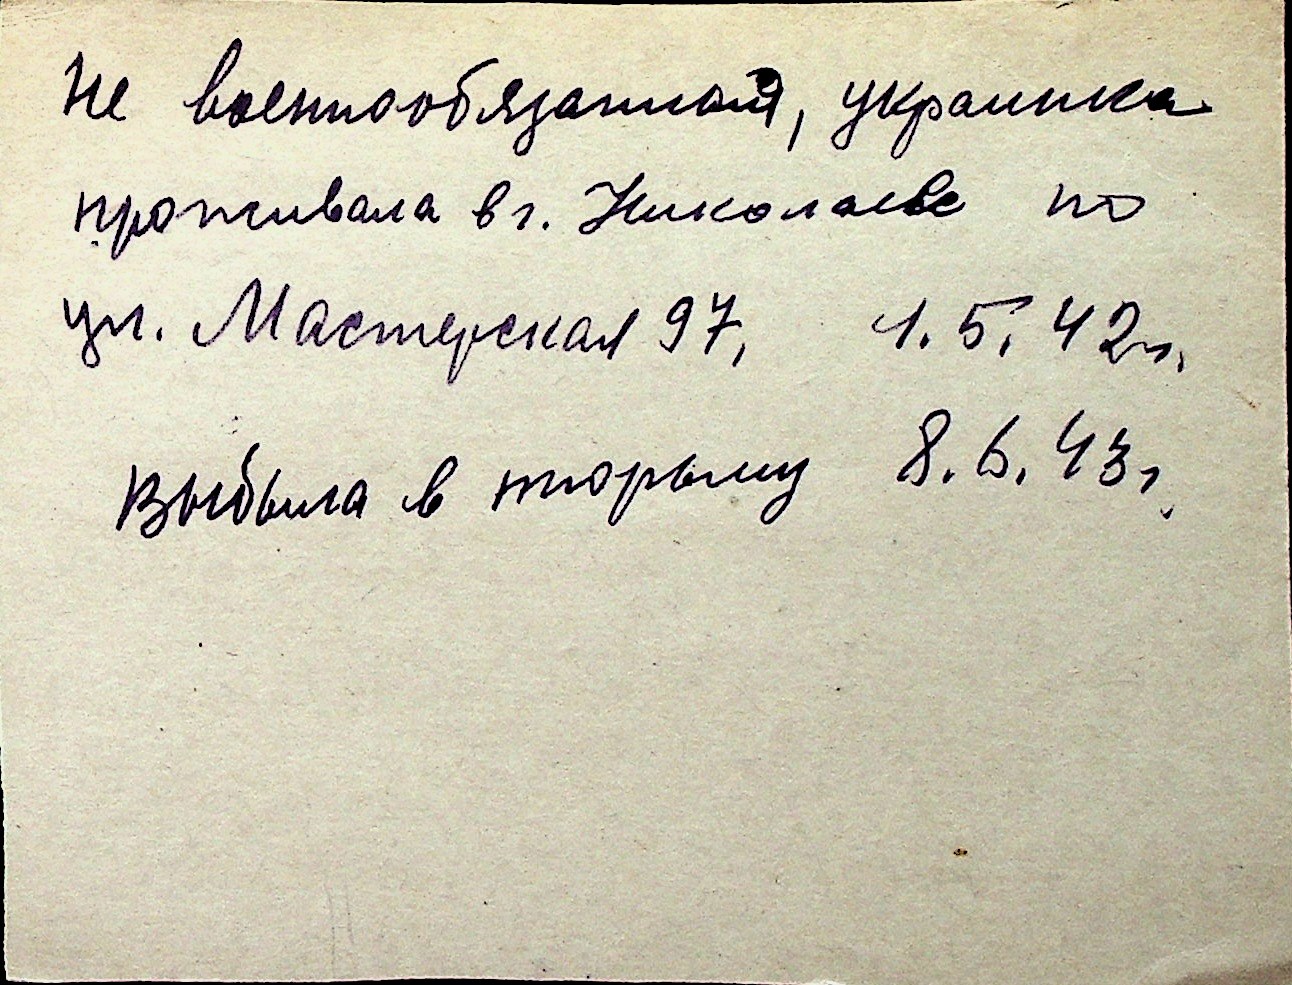 Не военнообязанная, украинка
проживала в г. Николаеве по
ул. Мастерская 97, 1.5.42г.
Выбыла в тюрьму 8.6.43г.